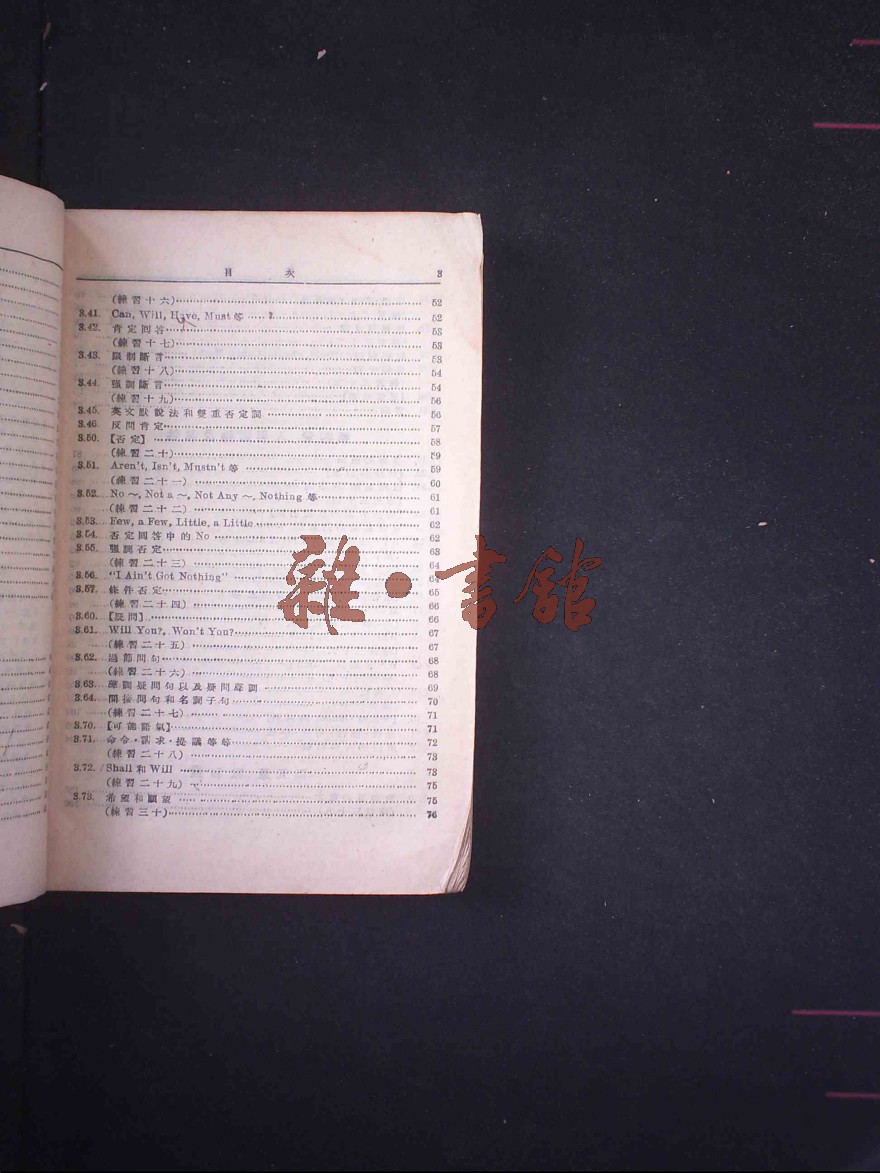 目 次 3
(練習十六) 52
3.41. Can, Will, Have, Must 等 52
3.42. 肯定回答 53
(練習十七) 53
3.43. 限制斷言 53
(練習十八) 54
3.44. 强調斷言 54
(練習十九) 56
3.45. 英文默說法和雙重否定詞 56
3.46. 反問肯定 57
3.50. 【否定】 58
(練習二十) 59
3.51. Aren't, Isn't, Mustn't 等 59
(練習二十一) 60
3.52. No ～, Not a ～, Not Any ～, Nothing 等 61
(練習二十二) 61
3.53. Few, a Few, Little, a Little 62
3.54. 否定回答中的 No 62
3.55. 强調否定 63
(練習二十三) 64
3.56. "I Ain't Got Nothing" 64
3.57. 條件否定 65
(練習二十四) 66
3.60. 【疑問】 66
3.61. Will You?, Won't You? 67
(練習二十五) 67
3.62. 過節問句 68
(練習二十六) 68
3.63. 疑問句以及疑問聲調 69
3.64. 間接問句和名詞子句 70
(練習二十七) 71
3.70. 【可能語氣】 71
3.71. 命令・請求・提議等等 72
(練習二十八) 73
3.72. Shall 和 Will 73
(練習二十九) 75
3.73. 希望和願望 75
(練習三十) 76
雜・書館